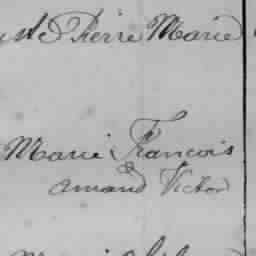 Pierre Marie
Marie Francois
amand Victor